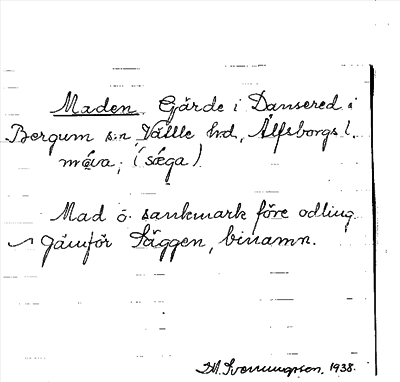 Maden. Gärde i Dansered i
Bergum s:n, Vättle hd, Älfsborgs l.
måva; (sæga).
Mad o. sankmark före odling.
Jämför Säggen, binamn.
1938.